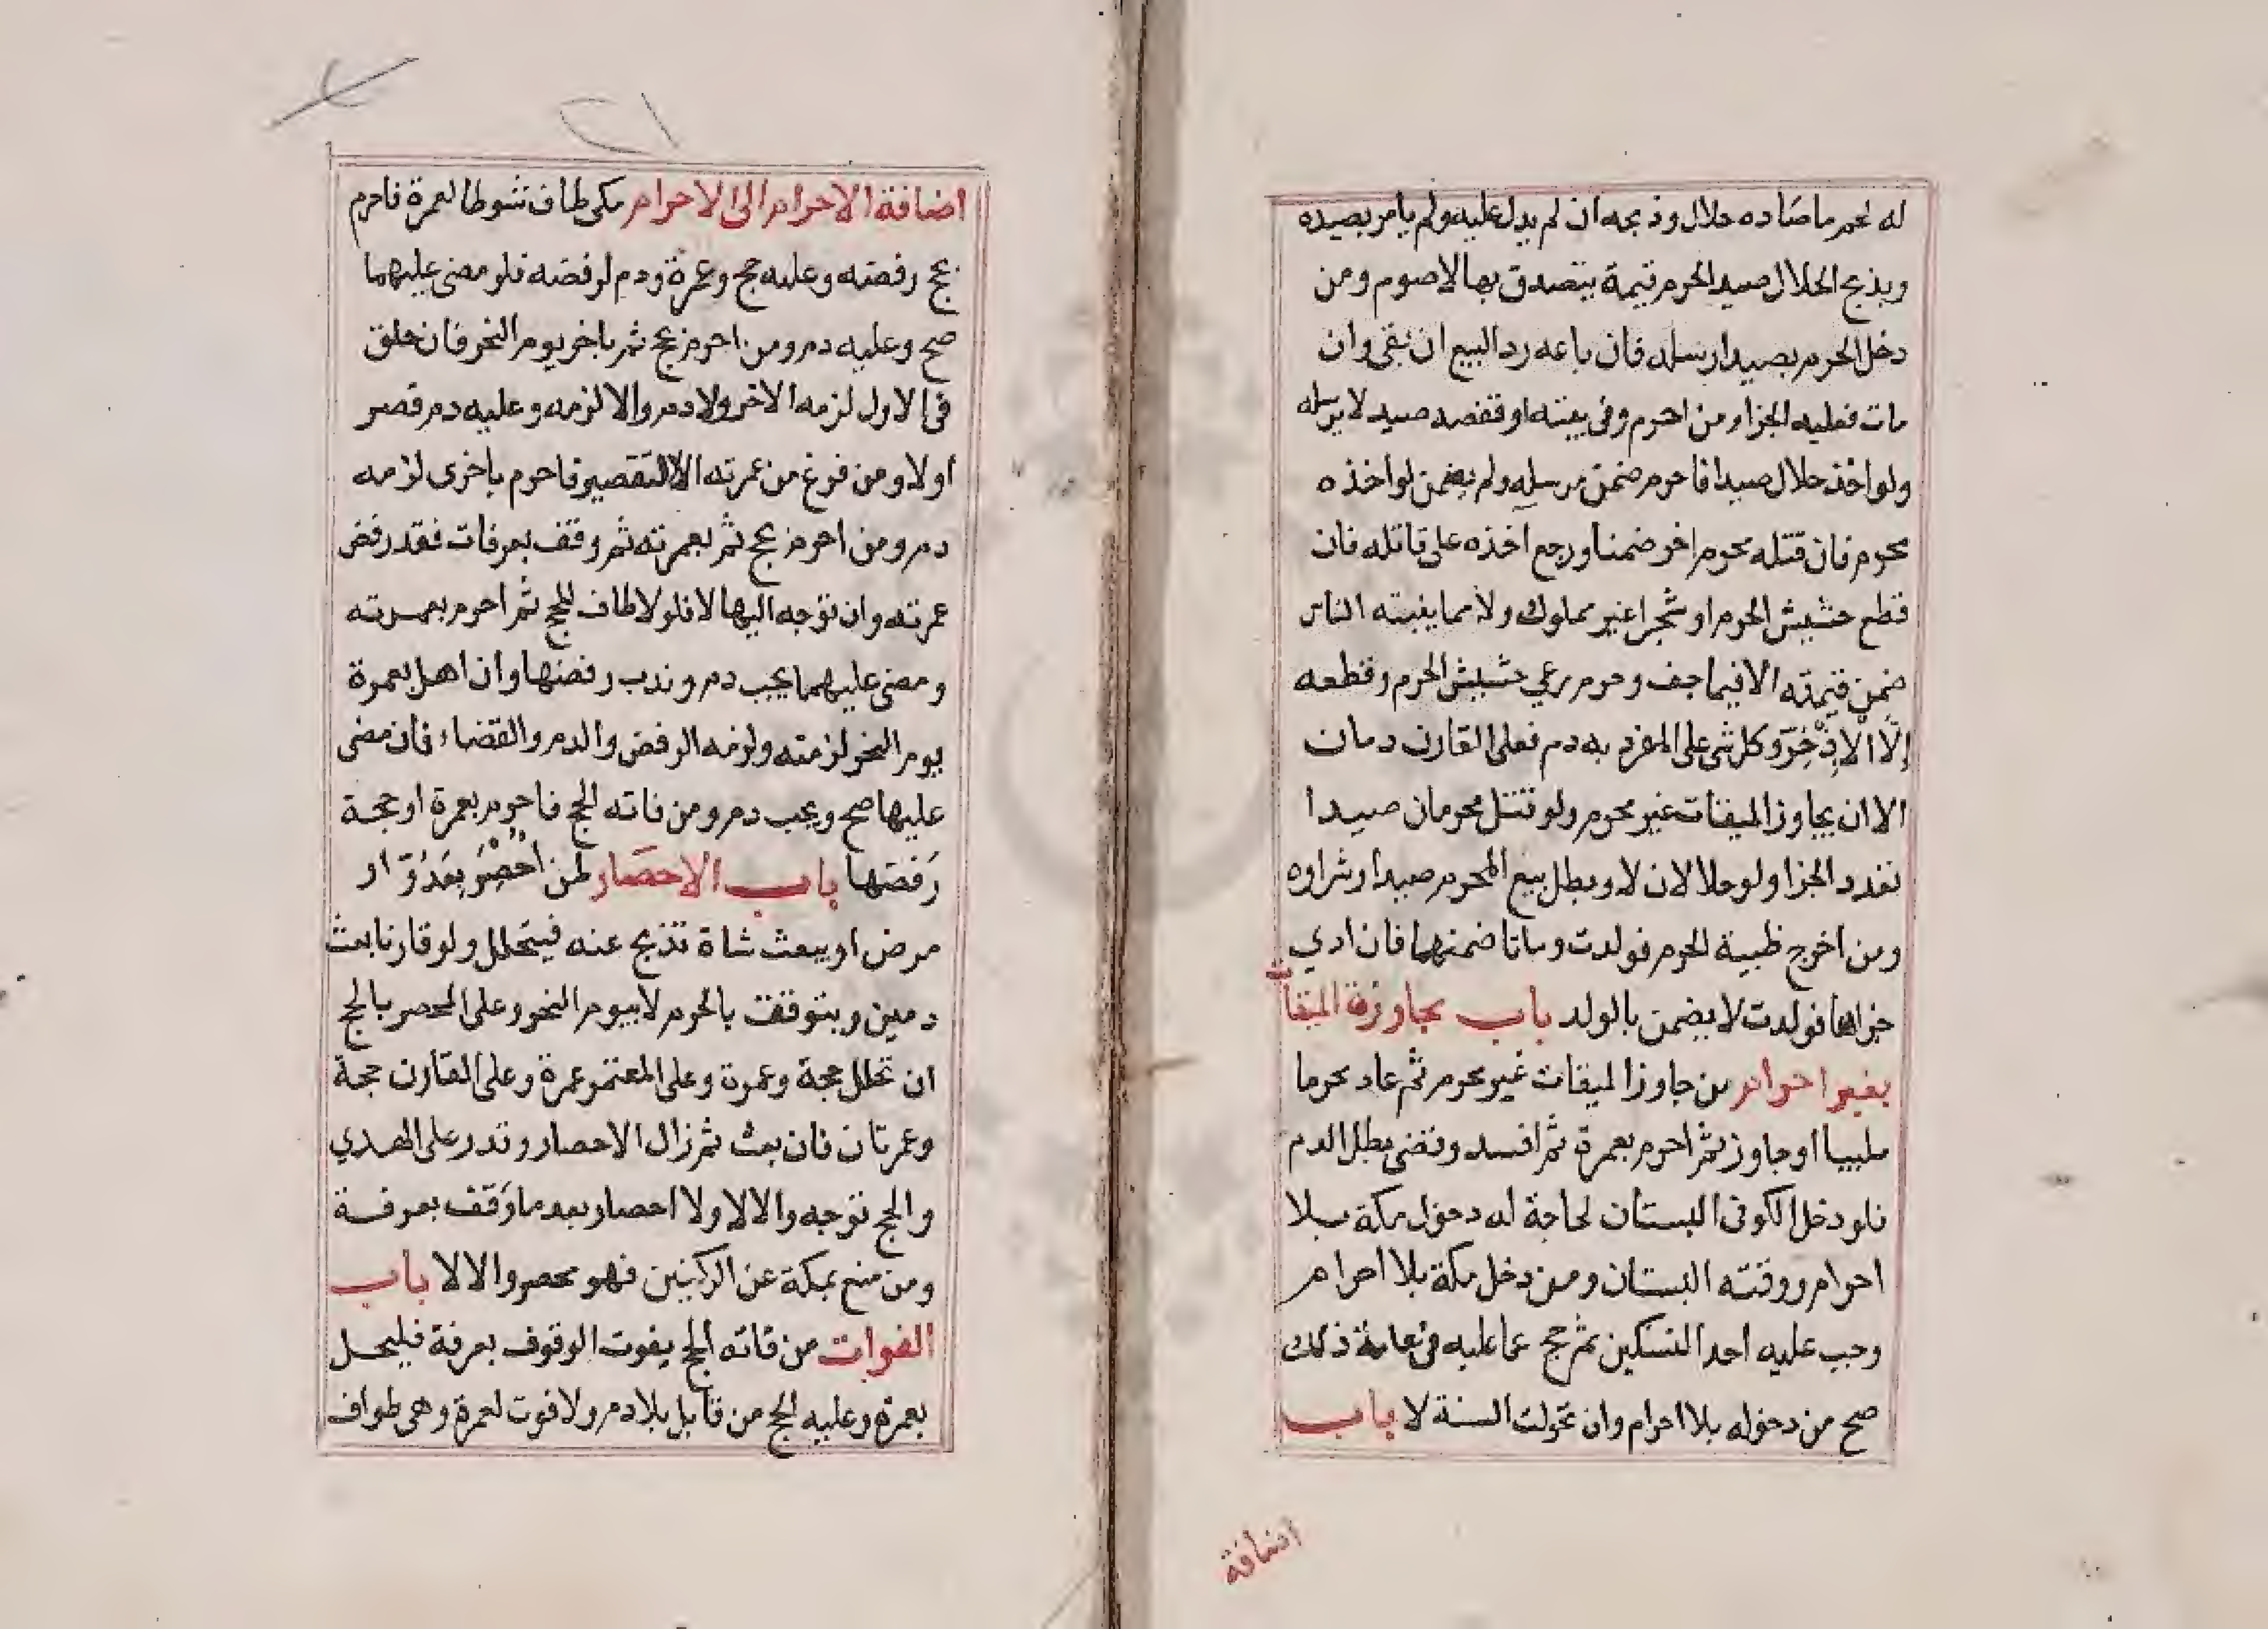 له لحم ما صاده حلال وذبحه ان لم يدل عليه ولم يامر بصيده
وبذبح الحلال صيد الحرم قيمة يتصدق بها لا صوم ومن
دخل الحرم بصيد ارسله فان باعه رد البيع ان بقى وان
مات فعليه الجزا ومن احرم وفى بيته او قفصه صيد لا يرسله
ولو اخذ حلال صيدا فاحرم ضمن مرسله ولم يضمن لو اخذه
محرم فان قتله محرم اخر ضمنا ورجع اخذه على قاتله فان
قطع حشيش الحرم او شجرا غير مملوك ولا مما ينبته الناس
ضمن قيمته الا فيما جف وحرم رعي حشيش الحرم وقطعه
إلّا الْاِذْخِرَ وكل شى على المفرد به دم فعلى القارن دمان
الا ان يجاوز الميقات غير محرم ولو قتل محرمان صيدا
تعدد الجزا ولو حلالان لا وبطل بيع المحرم صيدا وشراوه
ومن اخرج ظبية الحرم فولدت وماتا ضمنهما فان ادي
جزاها فولدت لا يضمن بالولد باب مجاوزة الميقات
بغير احرام من جاوز الميقات غير محرم ثم عاد محرما
ملبيا او جاوز ثم احرم بعمرة ثم افسد وقضى بطل الدم
فلو دخل الكوفى البستان لحاجة له دخول مكة بلا
احرام ووقته البستان ومن دخل مكة بلا احرام
وجب عليه احد النسكين ثم حج عما عليه فى عامة ذلك
صح من دخوله بلا احرام وان تحولت السنة لا باب
اضافة
اضافة الاحرام الى الاحرام مكى طاف شوطا لعمرة فاحرم
بحج رفضه وعليه حج وعمرة ودم لرفضه فلو مضى عليهما
صح وعليه دم ومن احرم بحج ثم باخر يوم النحر فان حلق
فى الاول لزمه الاخر ولا دم والا لزمه وعليه دم قصر
او لا ومن فرغ من عمرته الا التقصير فاحرم باخرى لزمه
دم ومن احرم بحج ثم بعمرته ثم وقف بعرفات فقد رفض
عمرته وان توجه اليها لا فلو لا طاف للحج ثم احرم بعمرته
ومضى عليهما يجب دم وندب رفضها وان اهل بعمرة
يوم النحر لزمته ولزمه الرفض والدم والقضاء فان مضى
عليها صح ويجب دم ومن فاته الحج فاحرم بعمرة او حجة
رَفضها باب الاحصَار لمن اُحْصِرَ بعَدُوّ او
مرض او يبعث شاة تذبح عنه فيتحلل ولو قارنا بعث
دمين ويتوقف بالحرم لا بيوم النحر وعلى المحصر بالحج
ان تحلل حجة وعمرة وعلى المعتمر عمرة وعلى القارن حجة
وعمرتان فان بعث ثم زال الاحصار وقدر على الهدي
والحج توجه والا لا ولا احصار بعد ما وَقف بعرفة
ومن منع بمكة عن الركنين فهو محصر والا لا باب
الفوات من فاته الحج يفوت الوقوف بعرفة فليحل
بعمرة وعليه الحج من قابل بلا دم ولا فوت لعمرة وهى طواف